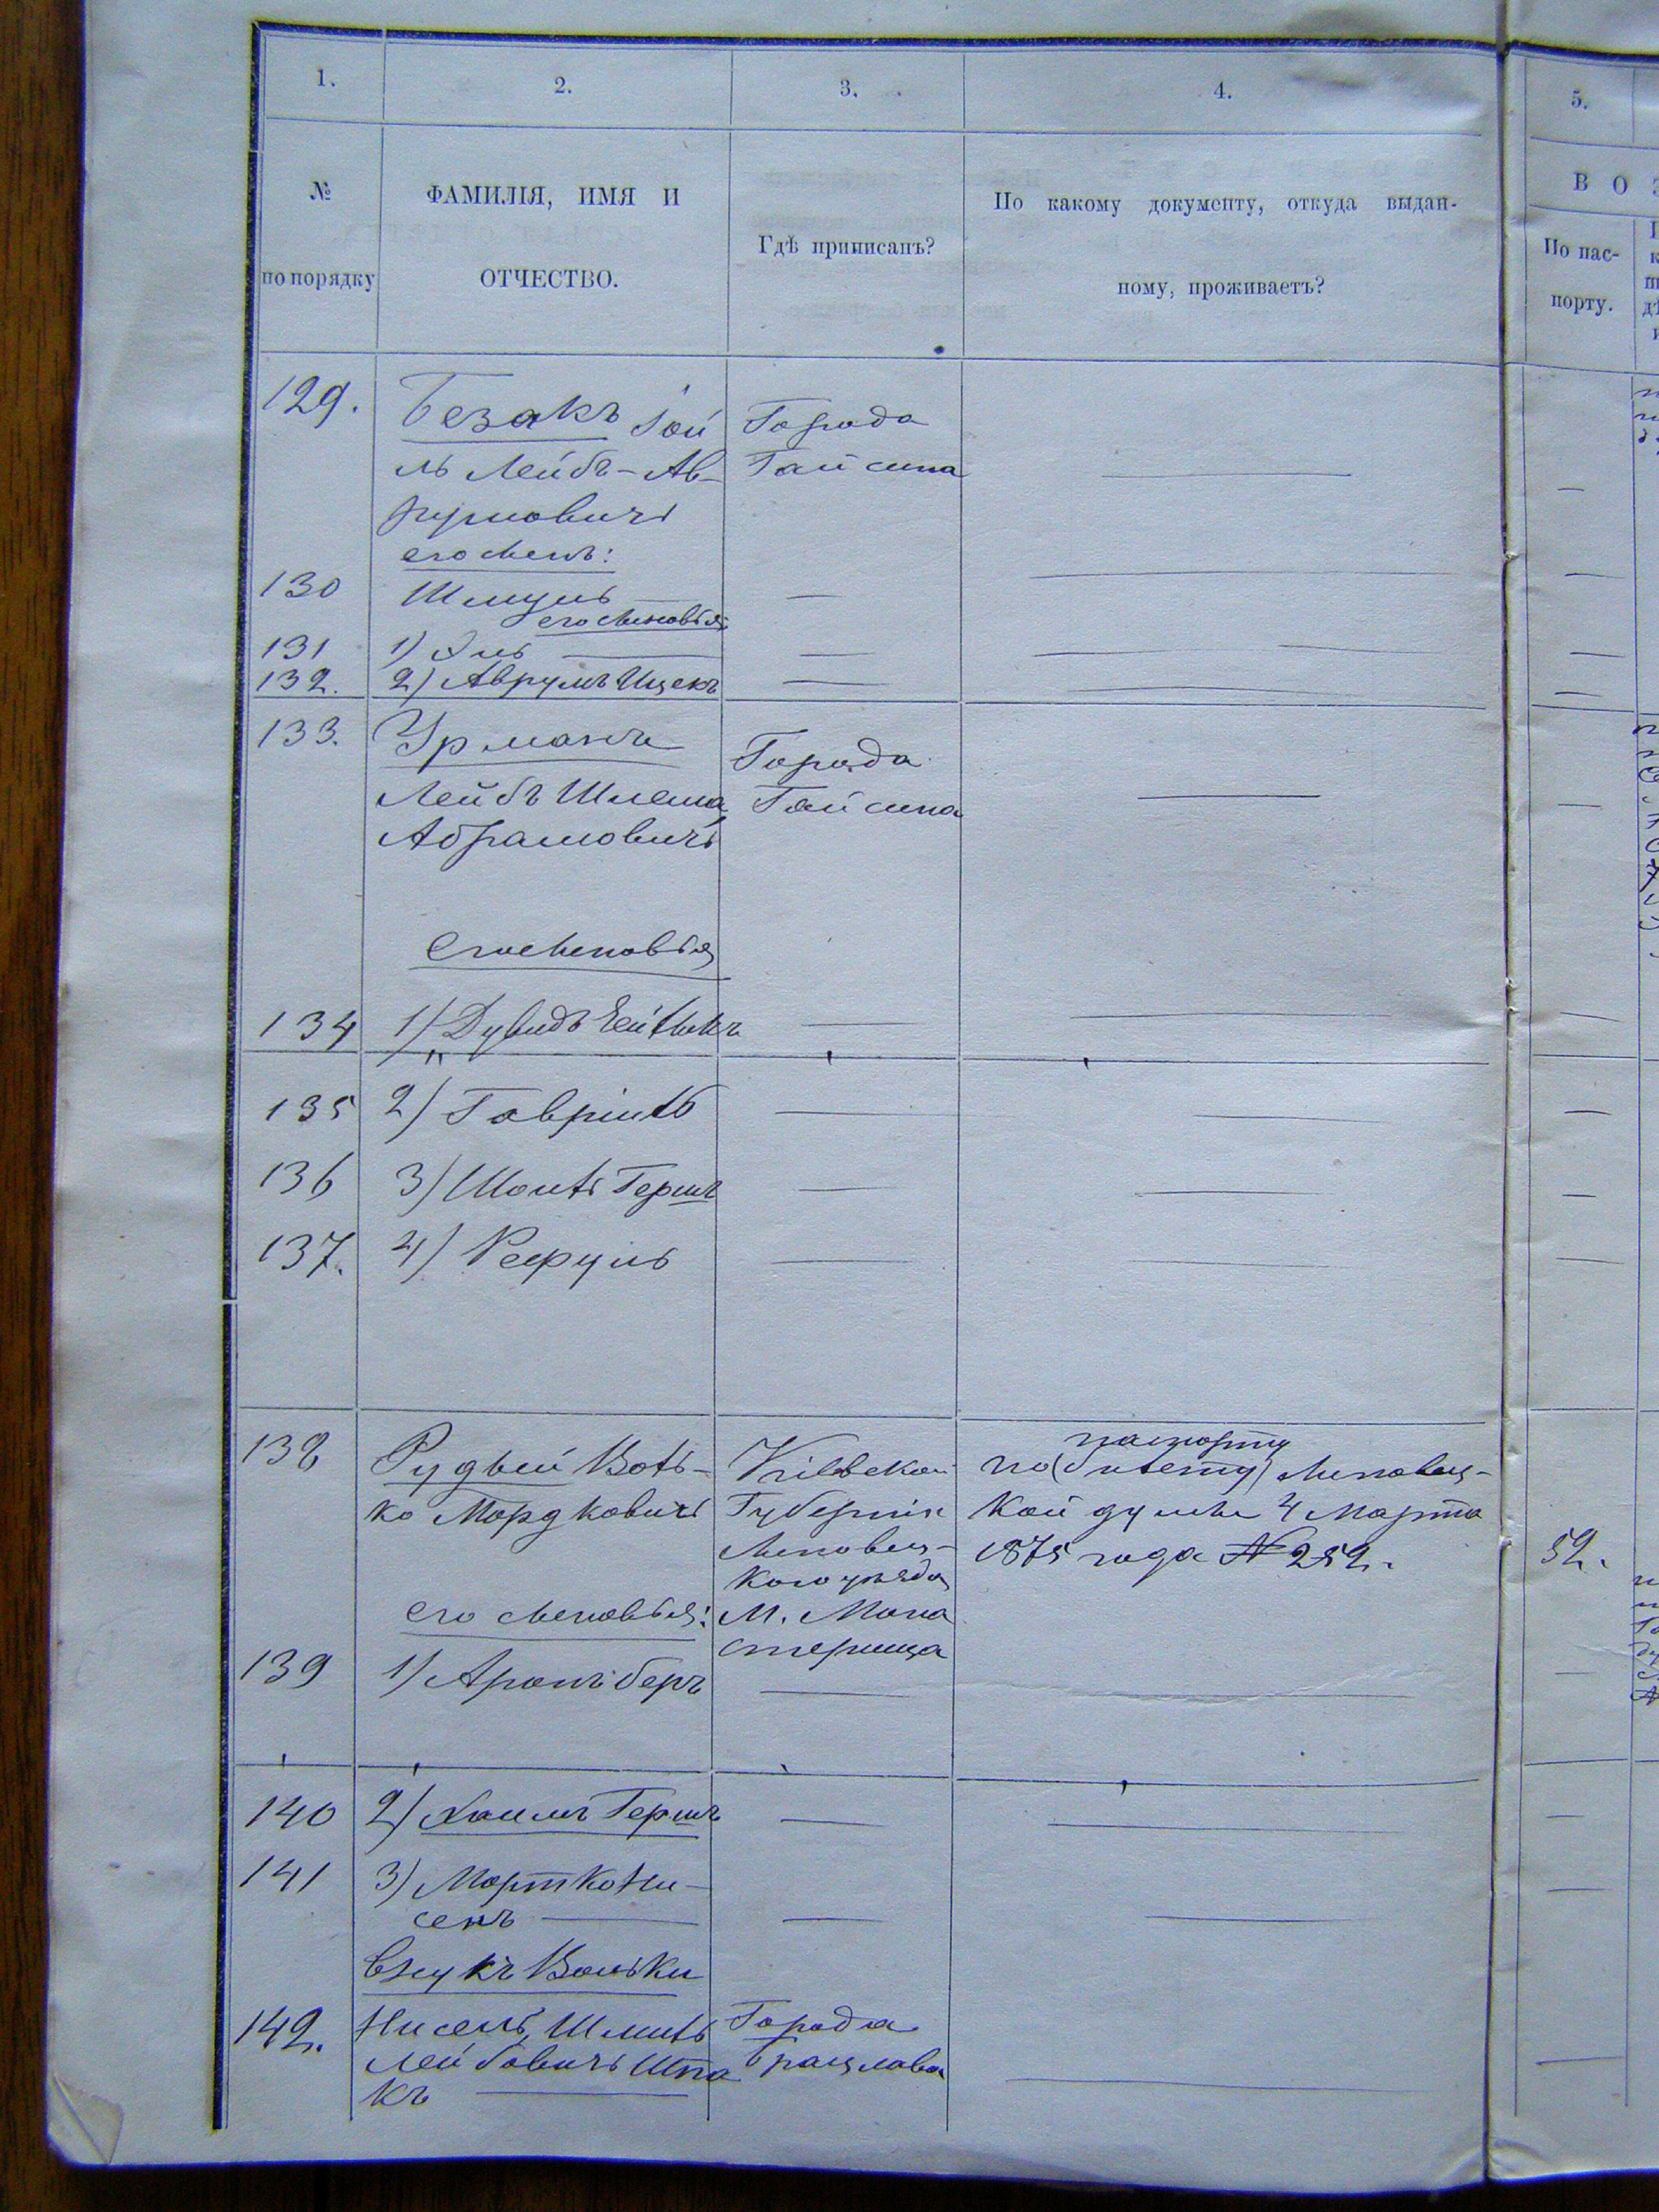 1.
2.
3.
4.
5.
№
по порядку
ФАМИЛІЯ, ИМЯ И
ОТЧЕСТВО.
Гдѣ приписанъ?
По какому документу, откуда выдан-
ному, проживаетъ?
В О З
По пас-
порту.
129.
Безакъ Іой
ль Лейбъ-Ав-
румовичъ
его сынъ:
Города
Гайсина
130
Шмуль
его сыновья:
131
1)
132.
2) Аврумъ Ицекъ
133.
Урманъ
Лейбъ Шлема
Абрамовичъ
Города
Гайсина
его сыновья
134
1) Дувидъ Ейзикъ
135
2) Гавріилъ
136
3) Гершъ
137.
4) Рефуль
138
Рудый Воль-
ко Мордковичъ
Кіевской
Губерніи
Липовец-
кого уѣзда
М. Мона
стерища
паспорту
по (билету) Липовец-
кой думы 4 Марта
1875 года № 252.
52.
его сыновья:
139
1) Аронъ беръ
140
2) Хаимъ Гершъ
141
3) Мортко Ни-
сенъ
внукъ Вольки
142.
Нисень, Шмиль
Лейбовичъ Шпа
къ
Города
Брацлава